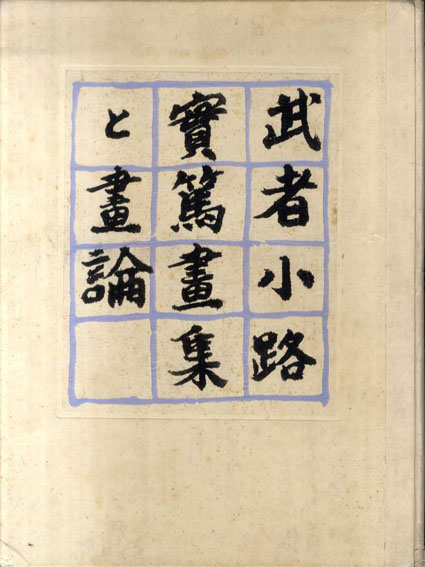 武者小路
實篤畫集
と畫論